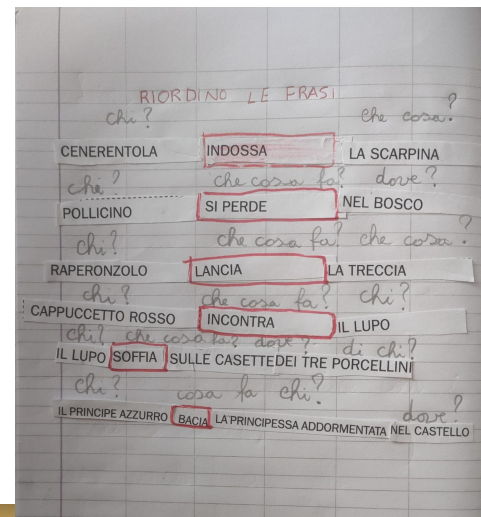 RIORDINO LE FRASI
chi? che cosa?
CENERENTOLA INDOSSA LA SCARPINA
chi? che cosa fa? dove?
POLLICINO SI PERDE NEL BOSCO
chi? che cosa fa? che cosa?
RAPERONZOLO LANCIA LA TRECCIA
chi? che cosa fa? chi?
CAPPUCCETTO ROSSO INCONTRA IL LUPO
chi? che cosa fa? dove? di chi?
IL LUPO SOFFIA SULLE CASETTE DEI TRE PORCELLINI
chi? cosa fa chi? dove?
IL PRINCIPE AZZURRO BACIA LA PRINCIPESSA ADDORMENTATA NEL CASTELLO